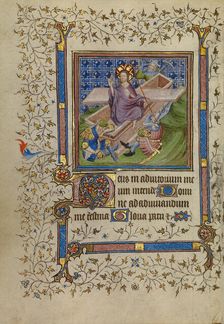 Deus in adiutorium me
um intende Domi
ne ad adiuuandum
me festina Gloria patri